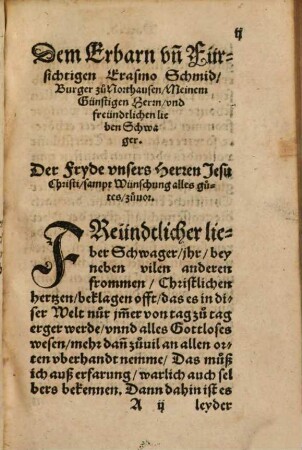 ij
Dem Erbarn vñ Für⸗
sichtigen Erasmo Schmid/
Burger zů Northausen/Meinem
Günstigen Herrn/vnd
freündtlichen lie
ben Schwa
ger.
Der Fryde vnsers Herren Jesu
Christi/sampt Wünschung alles gů⸗
tes/zůuor.
FReündtlicher lie⸗
ber Schwager/jhr/bey
neben vilen anderen
frommen/Christlichen
hertzen/beklagen offt/das es in di
ser Welt nůr jm̃er von tag zů tag
erger werde/vnnd alles Gottloses
wesen/mehr dañ zůuil an allen or⸗
ten vberhandt nemme/Das můß
ich auß erfarung/warlich auch sel
bers bekennen. Dann dahin ist es
A ij leyder